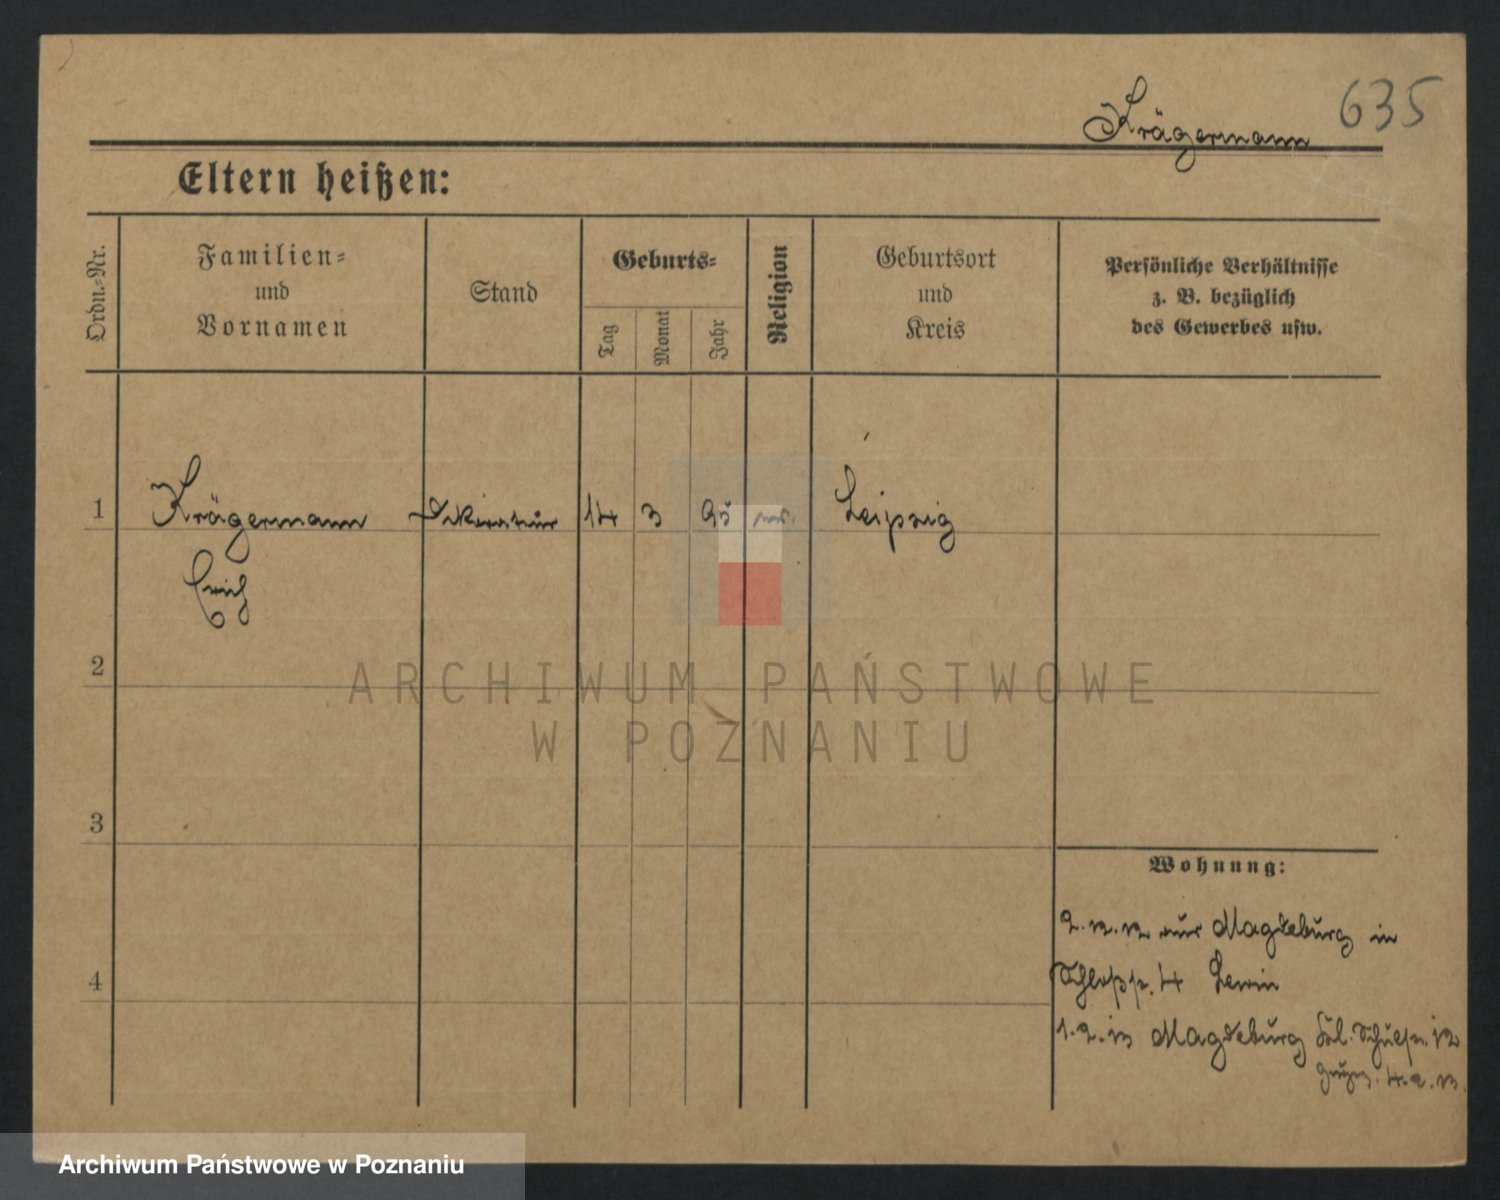 635
Krägermann
Eltern heißen:
Ordn.-Nr.
Familien-
und
Vornamen
Stand
Geburts-
Tag
Monat
Jahr
Religion
Geburtsort
und
Kreis
Persönliche Verhältnisse
z. B. bezüglich
des Gewerbes usw.
1
Krägermann
Dekorateur
14
3
95
Leipzig
Erich
2
3
4
Wohnung:
2.12.12 aus Magdeburg in
Schloßstr. 4 Lewin
1.2.13 Magdeburg Schulstr. 12
4.2.13.
ARCHIWUM PAŃSTWOWE
W POZNANIU
Archiwum Państwowe w Poznaniu